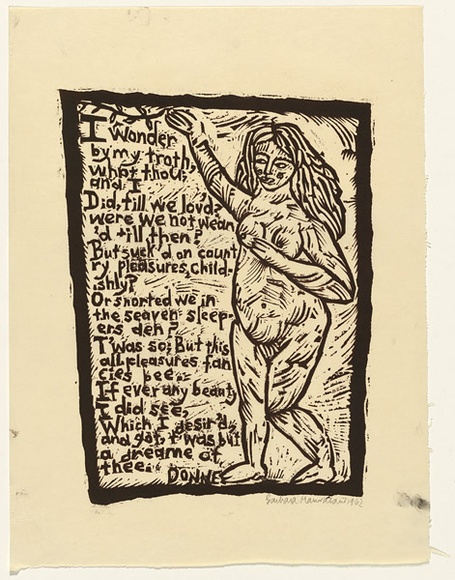 I wonder
by my troth,
what thou,
and I
Did, till we lov'd?
were we not wean
'd till then?
But suck'd on count
ry pleasures, child-
ishly?
Or snorted we in
the seaven sleep-
ers den?
T'was so; But this
all pleasures fan
cies bee:
If ever any beauty
I did see,
Which I desir'd,
and got, t'was but
a dreame of
thee.
DONNE
Barbara 1962